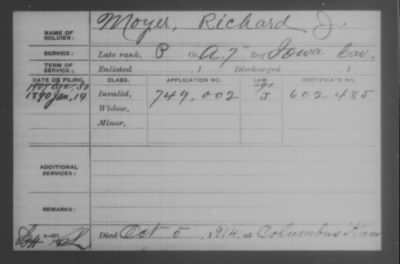 NAME OF SOLDIER: Moyer, Richard J.
SERVICE: Late rank, P Co. A, 7" Reg't Iowa Cav.
TERM OF SERVICE: Enlisted , 1 Discharged , 1
DATE OF FILING. CLASS. APPLICATION NO. LAW. CERTIFICATE NO.
1890 Jan, 14 Invalid, 749,002 J 602.485
Widow,
Minor,
ADDITIONAL SERVICES:
REMARKS:
Died Oct 5, 1914, at Columbus Kans